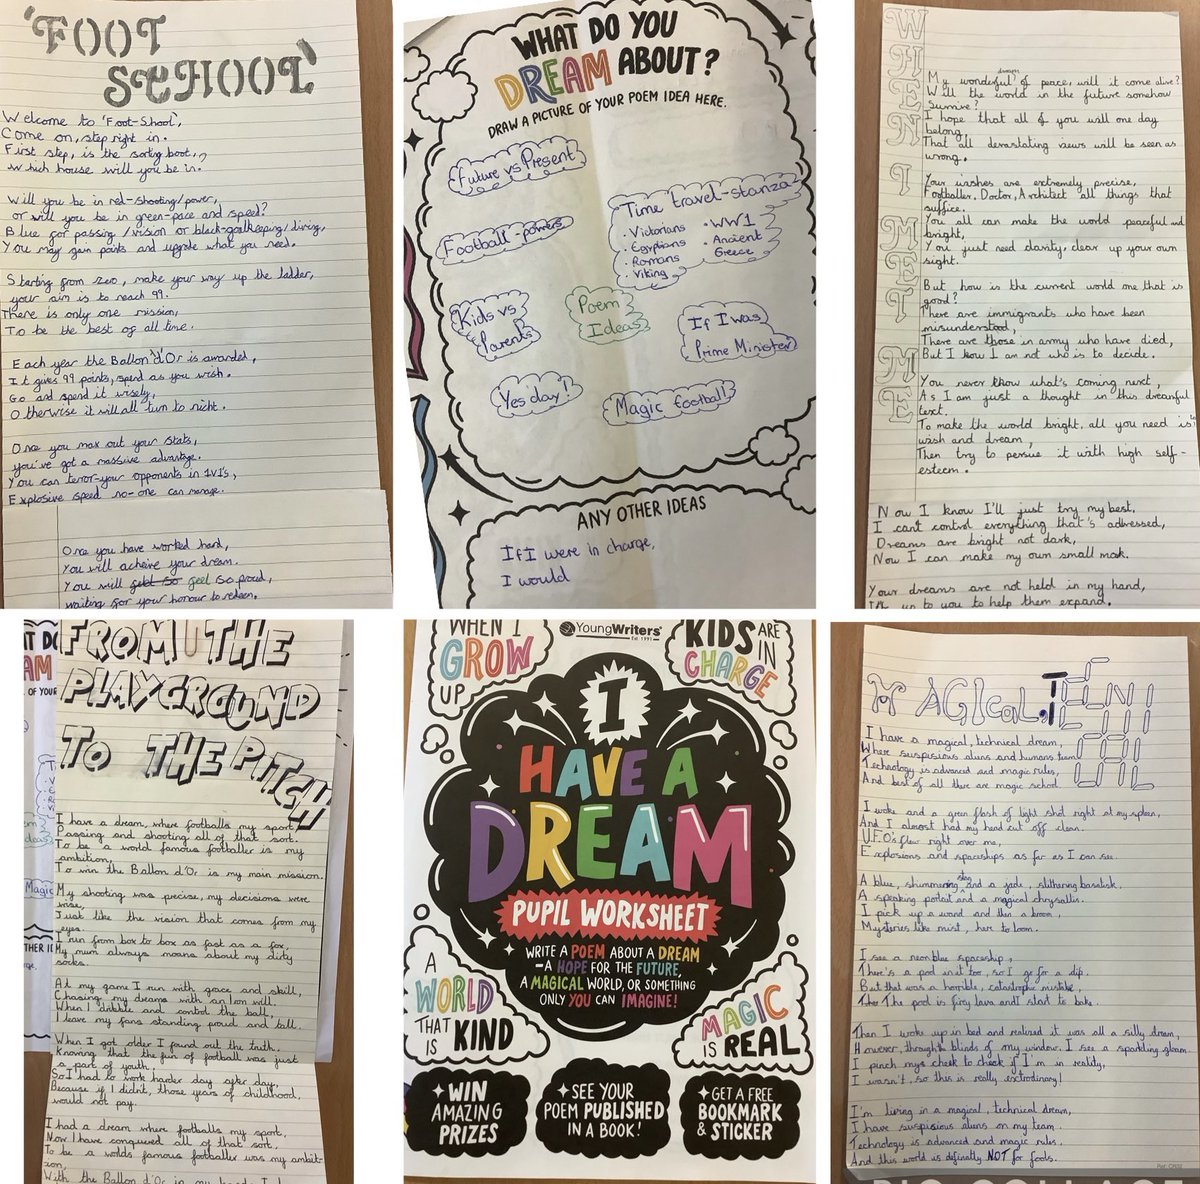 'FOOT
SCHOOL'
Welcome to 'Foot-Shool',
Come on, step right in.
First step, is the sorting boot,
Which house will you be in.
Will you be in red-shooting/power,
or will you be in green-pace and speed?
Blue for passing /vision or black-goalkeeping/diving,
You may gain points and upgrade what you need.
Starting from zero, make your way up the ladder,
your aim is to reach 99.
There is only one mission,
To be the best of all time.
Each year the Ballon 'd'Or is awarded,
It gives 99 points, spend as you wish.
Go and spend it wisely,
Otherwise it will all turn to
Once you max out your stats,
you've got a massive advantage.
You can terror-your opponents in 1v1's,
Explosive speed no-one can manage.
Once you have worked hard,
You will acheive your dream.
You will feel so proud,
waiting for your honour to redeem.
WHAT DO YOU
DREAM ABOUT?
DRAW A PICTURE OF YOUR POEM IDEA HERE.
Future vs Present
Football-powers
Time travel-stanza
· Victorians
· Egyptians
· Romans
· Viking
· WW1
· Ancient
Greece
Kids vs
Parents
Poem
Ideas
If I was
Prime Minister
Yes day!
Magic football
ANY OTHER IDEAS
If I were in charge,
I would
WHEN I MET ME
dream
My wonderful of peace, will it come alive?
Will the world in the future somehow
survive?
I hope that all of you will one day
belong,
That all devastating views will be seen as
wrong.
Your wishes are extremely precise,
Footballer, Doctor, Architect all things that
suffice.
You all can make the world peaceful and
bright,
You just need clarity, clear up your own
sight.
But how is the current world one that is
good?
There are immigrants who have been
misunderstood,
There are those in army who have died,
But I know I am not who is to decide.
You never know what's coming next,
As I am just a thought in this dreamful
text.
To make the world bright, all you need is to
wish and dream,
Then try to persue it with high self-
esteem.
Now I know I'll just try my best,
I cant control everything that's addressed,
Dreams are bright not dark,
Now I can make my own small mark.
Your dreams are not held in my hand,
It's up to you to help them expand.
FROM THE
PLAYGROUND
TO THE PITCH
I have a dream, where footballs my sport,
Passing and shooting all of that sort.
To be a world famous footballer is my
ambition,
To win the Ballon d'Or is my main mission.
My shooting was precise, my decisions were
wise,
Just like the vision that comes from my
eyes.
I run from box to box as fast as a fox,
My mum always moans about my dirty
socks.
At my game I run with grace and skill,
Chasing my dreams with an iron will.
When I dribble and control the ball,
I leave my fans standing proud and tall.
When I got older I found out the truth,
Knowing that the fun of football was just
a part of youth,
So I had to work harder day after day,
Because if I didnt, those years of childhood,
would not pay.
I had a dream where footballs my sport,
Now I have conquered all of that sort,
To be a worlds famous footballer was my ambit-
ion,
With the Ballon d'Or in my
WHEN I
GROW
UP
YoungWriters®
Est. 1991
KIDS ARE
IN
CHARGE
I
HAVE A
DREAM
PUPIL WORKSHEET
WRITE A POEM ABOUT A DREAM
–A HOPE FOR THE FUTURE,
A MAGICAL WORLD, OR SOMETHING
ONLY YOU CAN IMAGINE!
A
WORLD
THAT
IS KIND
MAGIC
IS REAL
WIN
AMAZING
PRIZES
SEE YOUR
POEM PUBLISHED
IN A BOOK!
GET A FREE
BOOKMARK
& STICKER
MAGICaL
TECHNICAL
I have a magical, technical dream,
Where suspisious aliens and humans team
Technology is advanced and magic rules,
And best of all there are magic school.
I woke and a green flash of light shot right at my spleen,
And I almost had my head cut off clean.
U.F.O's flew right over me,
Explosions and spaceships as far as I can see.
A blue, shimmering stag and a jade, slithering basalisk,
A speaking portrait and a magical chrysallis.
I pick up a wand and then a broom,
Mysteries like mist, here to loom.
I see a neon blue spaceship,
There's a pool in it too, so I go for a dip.
But that was a horrible, catastrophic mistake,
The pool is firy lava and I start to bake.
Then I woke up in bed and realized it was all a silly dream,
However, through blinds of my window, I see a sparkling gleam.
I pinch my cheek to check if I'm in reality,
I wasn't, so this is really extrodinary!
I'm living in a magical, technical dream,
I have suspisious aliens on my team.
Technology is advanced and magic rules,
And this world is definatly NOT for fools.